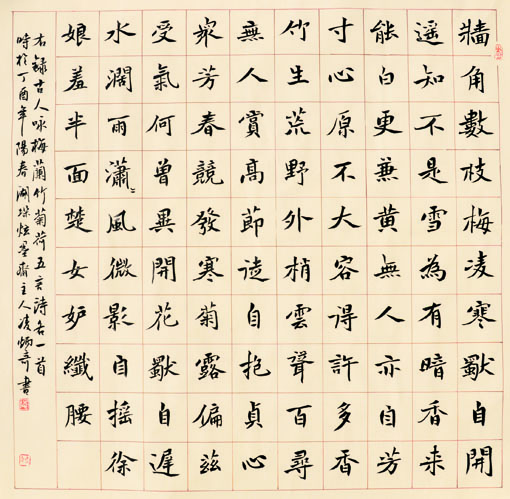 牆角數枝梅凌寒獨自開
遥知不是雪為有暗香来
能白更兼黄無人亦自芳
寸心原不大容得許多香
竹生荒野外梢雲聳百尋
無人賞高節徒自抱貞心
衆芳春競發寒菊露偏滋
受氣何曾異開花獨自遲
水濶雨瀟〻風微影自摇徐
娘羞半面楚女妒纖腰
右錄古人咏梅蘭竹菊荷五言詩各一首
時於丁酉年陽春湖墨齋主人凌炳奇書